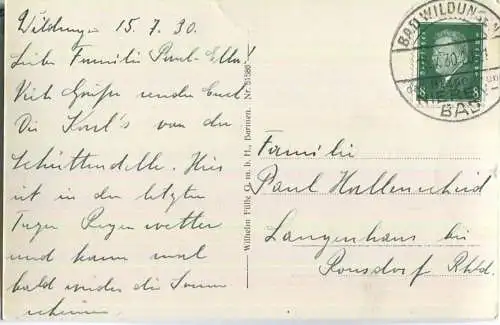 Wildungen 15.7.30.
Liebe Familie Paul-Ella!
Viele Grüße senden Euch
Die Karl's von der
Schüttendelle. Hier
ist in den letzten
Tagen Regenwetter
und kann mal
bald wieder die Sonne
scheinen
Wilhelm Fülle G. m. b. H., Barmen. Nr. 51580
BAD WILDUNGEN
BAD
8 8
Familie
Paul Hallenscheid
Langenhaus bei
Ronsdorf Rhld.